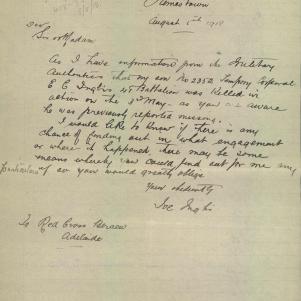 Jamestown
August 5th 1918
Sir or Madam
As I have information from the Military
Authorities that my son No 2352 Tempory Corporal
E C Inglis 45 Battalion was Killed in
action on the 3rd May. as you are aware
he was previously reported missing.
I would like to know if there is any
chance of finding out in what engagement
or where it happened there may be some
means whereby you could find out for me any
particulars if so you would greatly oblige
Your obediently
Joe Inglis
To Red Cross Bureau
Adelaide